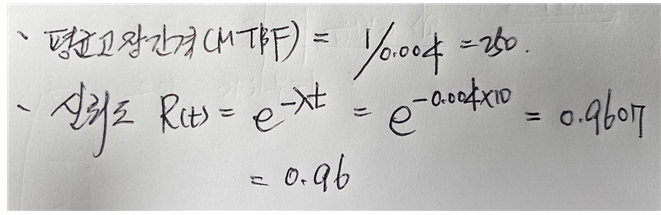 、평균고장간격(MTBF) = 1/0.004 = 250.
、신뢰도 R(t) = e^-λt = e^-0.004×10 = 0.9607
= 0.96